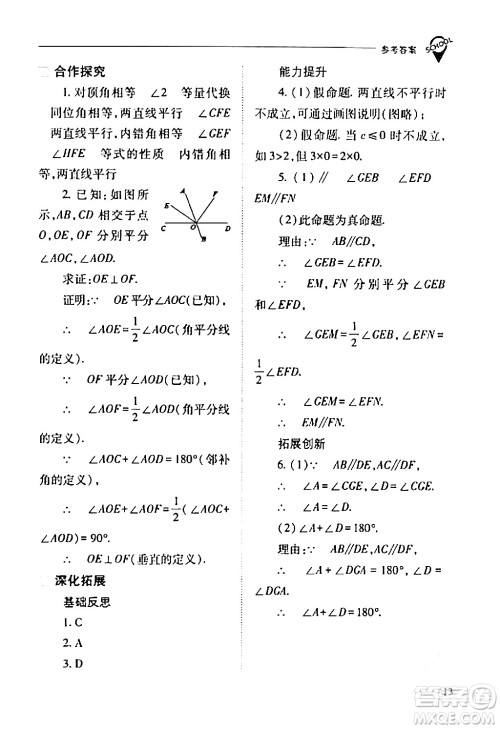 参考答案
SCHOOL
合作探究
1. 对顶角相等 ∠2 等量代换
同位角相等，两直线平行 ∠CFE
两直线平行，内错角相等 ∠GEF
∠HFE 等式的性质 内错角相
等，两直线平行
2. 已知：如图所
示，AB，CD 相交于点
O，OE，OF 分别平分
∠AOC，∠AOD.
A F
E
C O D
B
求证：OE⊥OF.
证明：∵ OE平分∠AOC(已知)，
∴ ∠AOE=1/2∠AOC(角平分线
的定义).
∵ OF平分∠AOD(已知)，
∴ ∠AOF=1/2∠AOD(角平分线
的定义).
∵ ∠AOC+∠AOD=180°(邻补
角的定义)，
∴ ∠AOE+∠AOF=1/2(∠AOC+
∠AOD)=90°.
∴ OE⊥OF(垂直的定义).
深化拓展
基础反思
1. C
2. A
3. D
能力提升
4. (1)假命题. 两直线不平行时
不成立，可通过画图说明(图略);
(2)假命题. 当 c≤0 时不成立，
如 3>2，但 3×0=2×0.
5. (1)∥ ∠GEB ∠GEB
EM∥FN
(2)此命题为真命题.
理由：∵ AB∥CD，
∴ ∠GEB=∠EFD.
∵ EM，FN 分别平分∠GEB
和∠EFD，
∴ ∠GEM=1/2∠GEB，∠EFN=
1/2∠EFD.
∴ ∠GEM=∠EFN.
∴ EM∥FN.
拓展创新
6. (1)∵ AB∥DE，AC∥DF，
∴ ∠A=∠CGE，∠D=∠CGE.
∴ ∠A=∠D.
(2)∠A+∠D=180°.
理由：∵ AB∥DE，AC∥DF，
∴ ∠A+∠DGA=180°，∠D=
∠DGA.
∴ ∠A+∠D=180°.
13